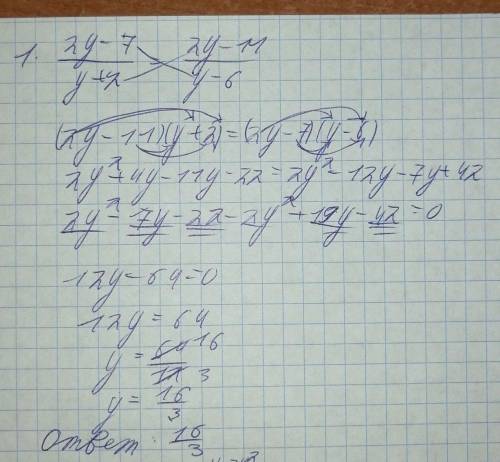 1. (2y-7)/(y+2) = (2y-11)/(y-6)
(2y-11)(y+2)=(2y-7)(y-6)
2y²+4y-11y-22=2y²-12y-7y+42
2y²-7y-22-2y²+19y-42=0
12y-64=0
12y=64
y=64/12 16/3
y=16/3
Ответ: 16/3